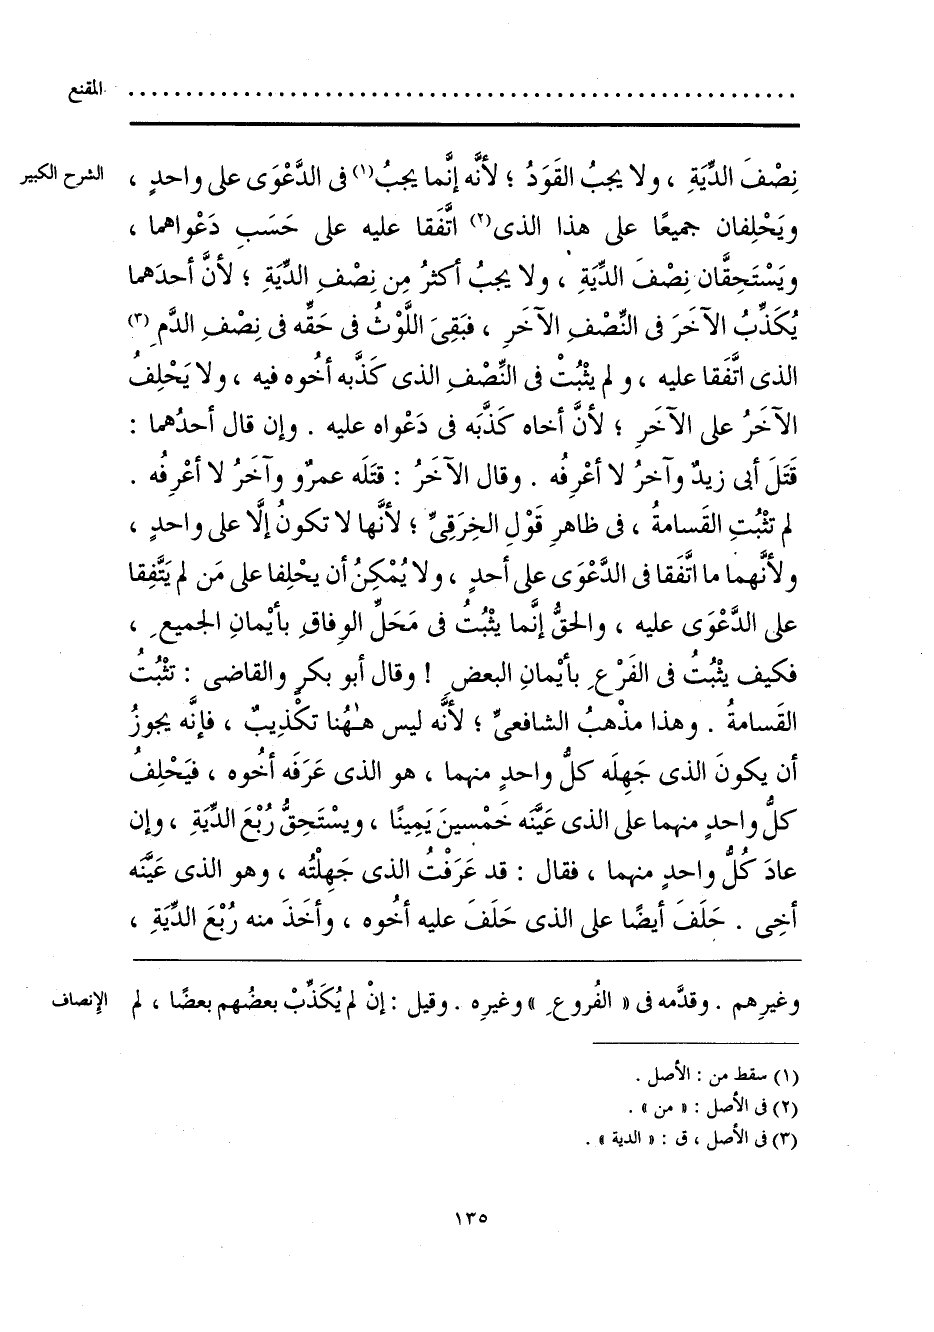 المقنع . . . . . . . . . . . . . . . . . . . . . . . . . . . . . . . . . . . . . . . . . . . . . . . . . . . . . . . . . . .
الشرح الكبير
نِصْفَ الدِّيَةِ ، ولا يجبُ القَوَدُ ؛ لأنَّه إنَّما يجبُ(١) فى الدَّعْوَى على واحدٍ ،
ويَحْلِفان جميعًا على هذا الذى(٢) اتَّفَقا عليه على حَسَبِ دَعْواهما ،
ويَسْتَحِقَّان نِصْفَ الدِّيَةِ ، ولا يجبُ أكثرُ مِن نِصْفِ الدِّيَةِ ؛ لأنَّ أحدَهما
يُكَذِّبُ الآخَرَ فى النِّصْفِ الآخَرِ ، فبَقِىَ اللَّوْثُ فى حَقِّه فى نِصْفِ الدَّمِ(٣)
الذى اتَّفَقا عليه ، ولم يثْبُتْ فى النِّصْفِ الذى كَذَّبه أخُوه فيه ، ولا يَحْلِفُ
الآخَرُ على الآخَرِ ؛ لأنَّ أخاه كَذَّبَه فى دَعْواه عليه . وإن قال أحدُهما :
قَتَلَ أبى زيدٌ وآخرُ لا أعْرِفُه . وقال الآخَرُ : قتَلَه عمرٌو وآخَرُ لا أعْرِفُه .
لم تثْبُتِ القَسامةُ ، فى ظاهرِ قَوْلِ الخِرَقِىِّ ؛ لأنَّها لا تكونُ إلَّا على واحدٍ ،
ولأنَّهما ما اتَّفَقا فى الدَّعْوَى على أحدٍ ، ولا يُمْكِنُ أن يحْلِفا على مَن لم يَتَّفِقا
على الدَّعْوَى عليه ، والحقُّ إنَّما يثْبُتُ فى مَحَلِّ الوِفاقِ بأيْمانِ الجميعِ ،
فكيف يثْبُتُ فى الفَرْعِ بأيْمانِ البعضِ ! وقال أبو بكرٍ والقاضى : تثْبُتُ
القَسامةُ . وهذا مذْهبُ الشافعىِّ ؛ لأنَّه ليس هٰهُنا تكْذِيبٌ ، فإنَّه يجوزُ
أن يكونَ الذى جَهِلَه كلُّ واحدٍ منهما ، هو الذى عَرَفَه أخُوه ، فيَحْلِفُ
كلُّ واحدٍ منهما على الذى عَيَّنَه خَمْسينَ يَمِينًا ، ويسْتَحِقُّ رُبْعَ الدِّيَةِ ، وإن
عادَ كُلُّ واحدٍ منهما ، فقال : قد عَرَفْتُ الذى جَهِلْتُه ، وهو الذى عَيَّنَه
أخِى . حَلَفَ أيضًا على الذى حَلَفَ عليه أخُوه ، وأخَذَ منه رُبْعَ الدِّيَةِ ،
الإنصاف
وغيرِهم . وقدَّمه فى « الفُروعِ » وغيرِه . وقيل : إنْ لم يُكَذِّبْ بعضُهم بعضًا ، لم
(١) سقط من : الأصل .
(٢) فى الأصل : « من » .
(٣) فى الأصل ، ق : « الدية » .
١٣٥